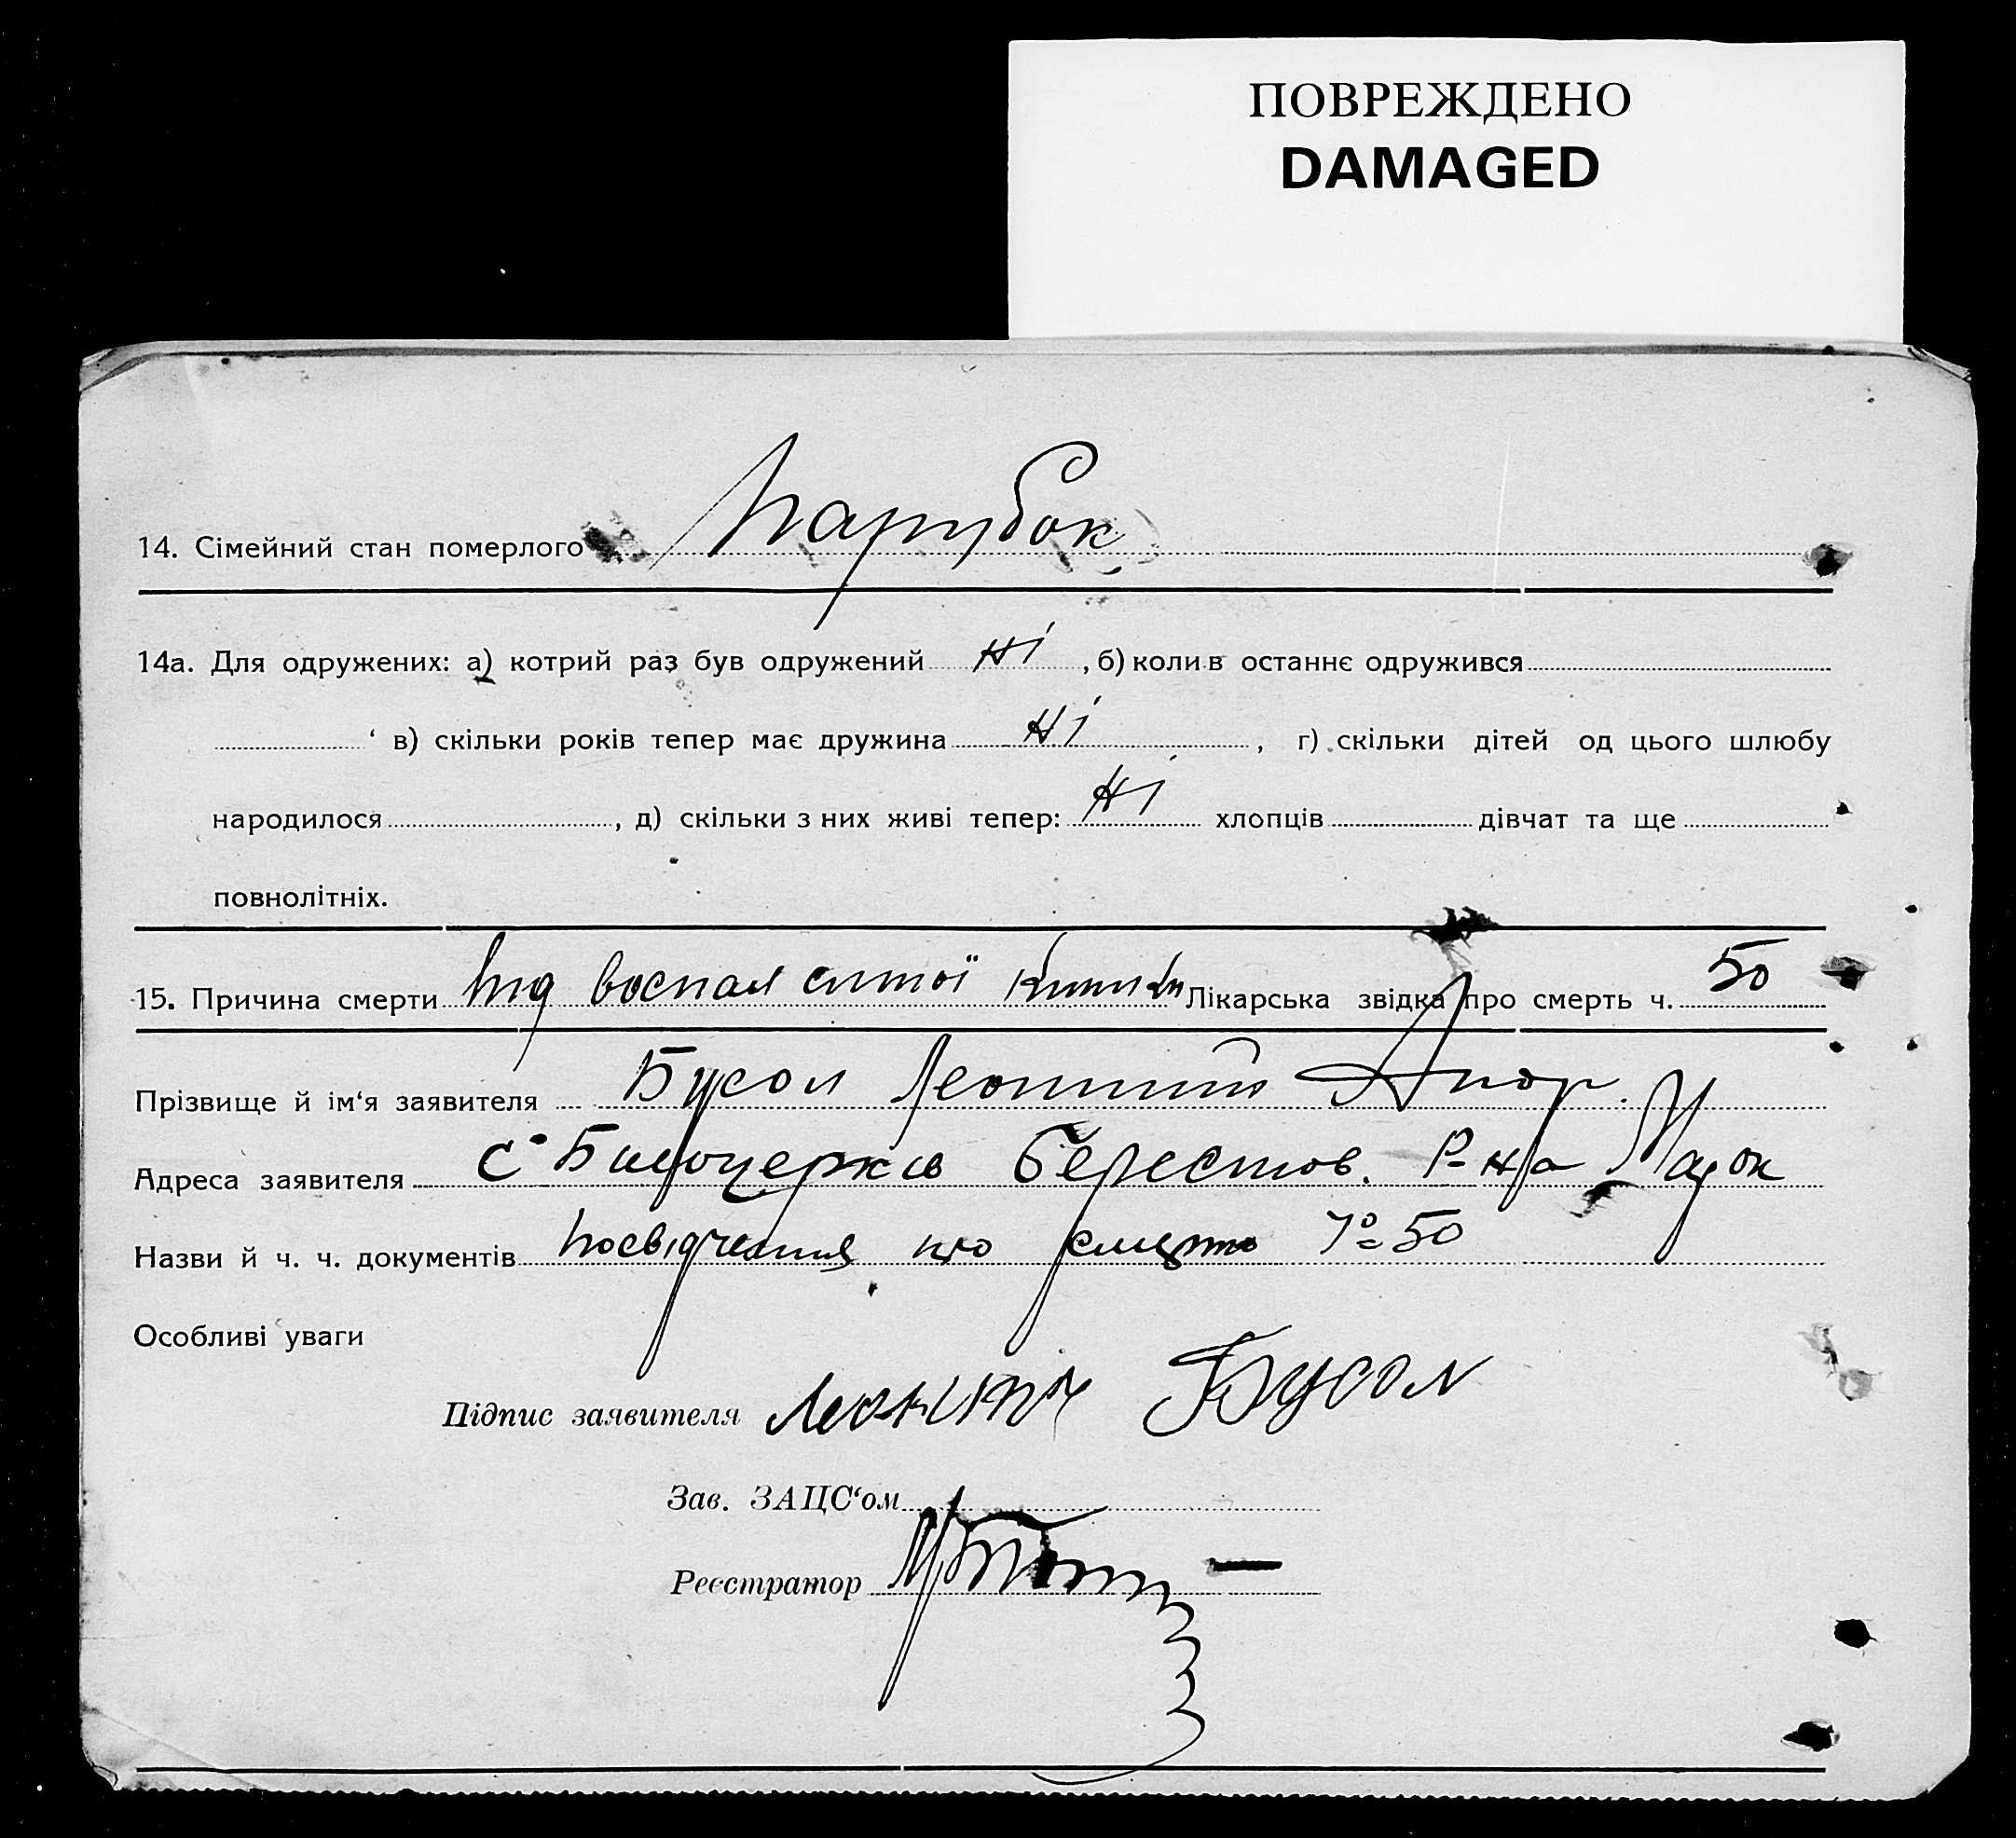 ПОВРЕЖДЕНО
DAMAGED
14. Сімейний стан померлого Парубок
14а. Для одружених: а) котрий раз був одружений Ні, б) коли в останнє одружився
в) скільки років тепер має дружина Ні, г) скільки дітей од цього шлюбу
народилося, д) скільки з них живі тепер: Ні хлопців дівчат та ще
повнолітніх.
15. Причина смерти Від воспал Лікарська звідка про смерть ч. 50
Прізвище й ім'я заявителя Бусол Леонтий
Адреса заявителя с. Білоцерків Берестов. Р-на
Назви й ч. ч. документів Посвідчення про смерть № 50
Особливі уваги
Підпис заявителя Леонтий Бусол
Зав. ЗАЦС'ом
Реєстратор